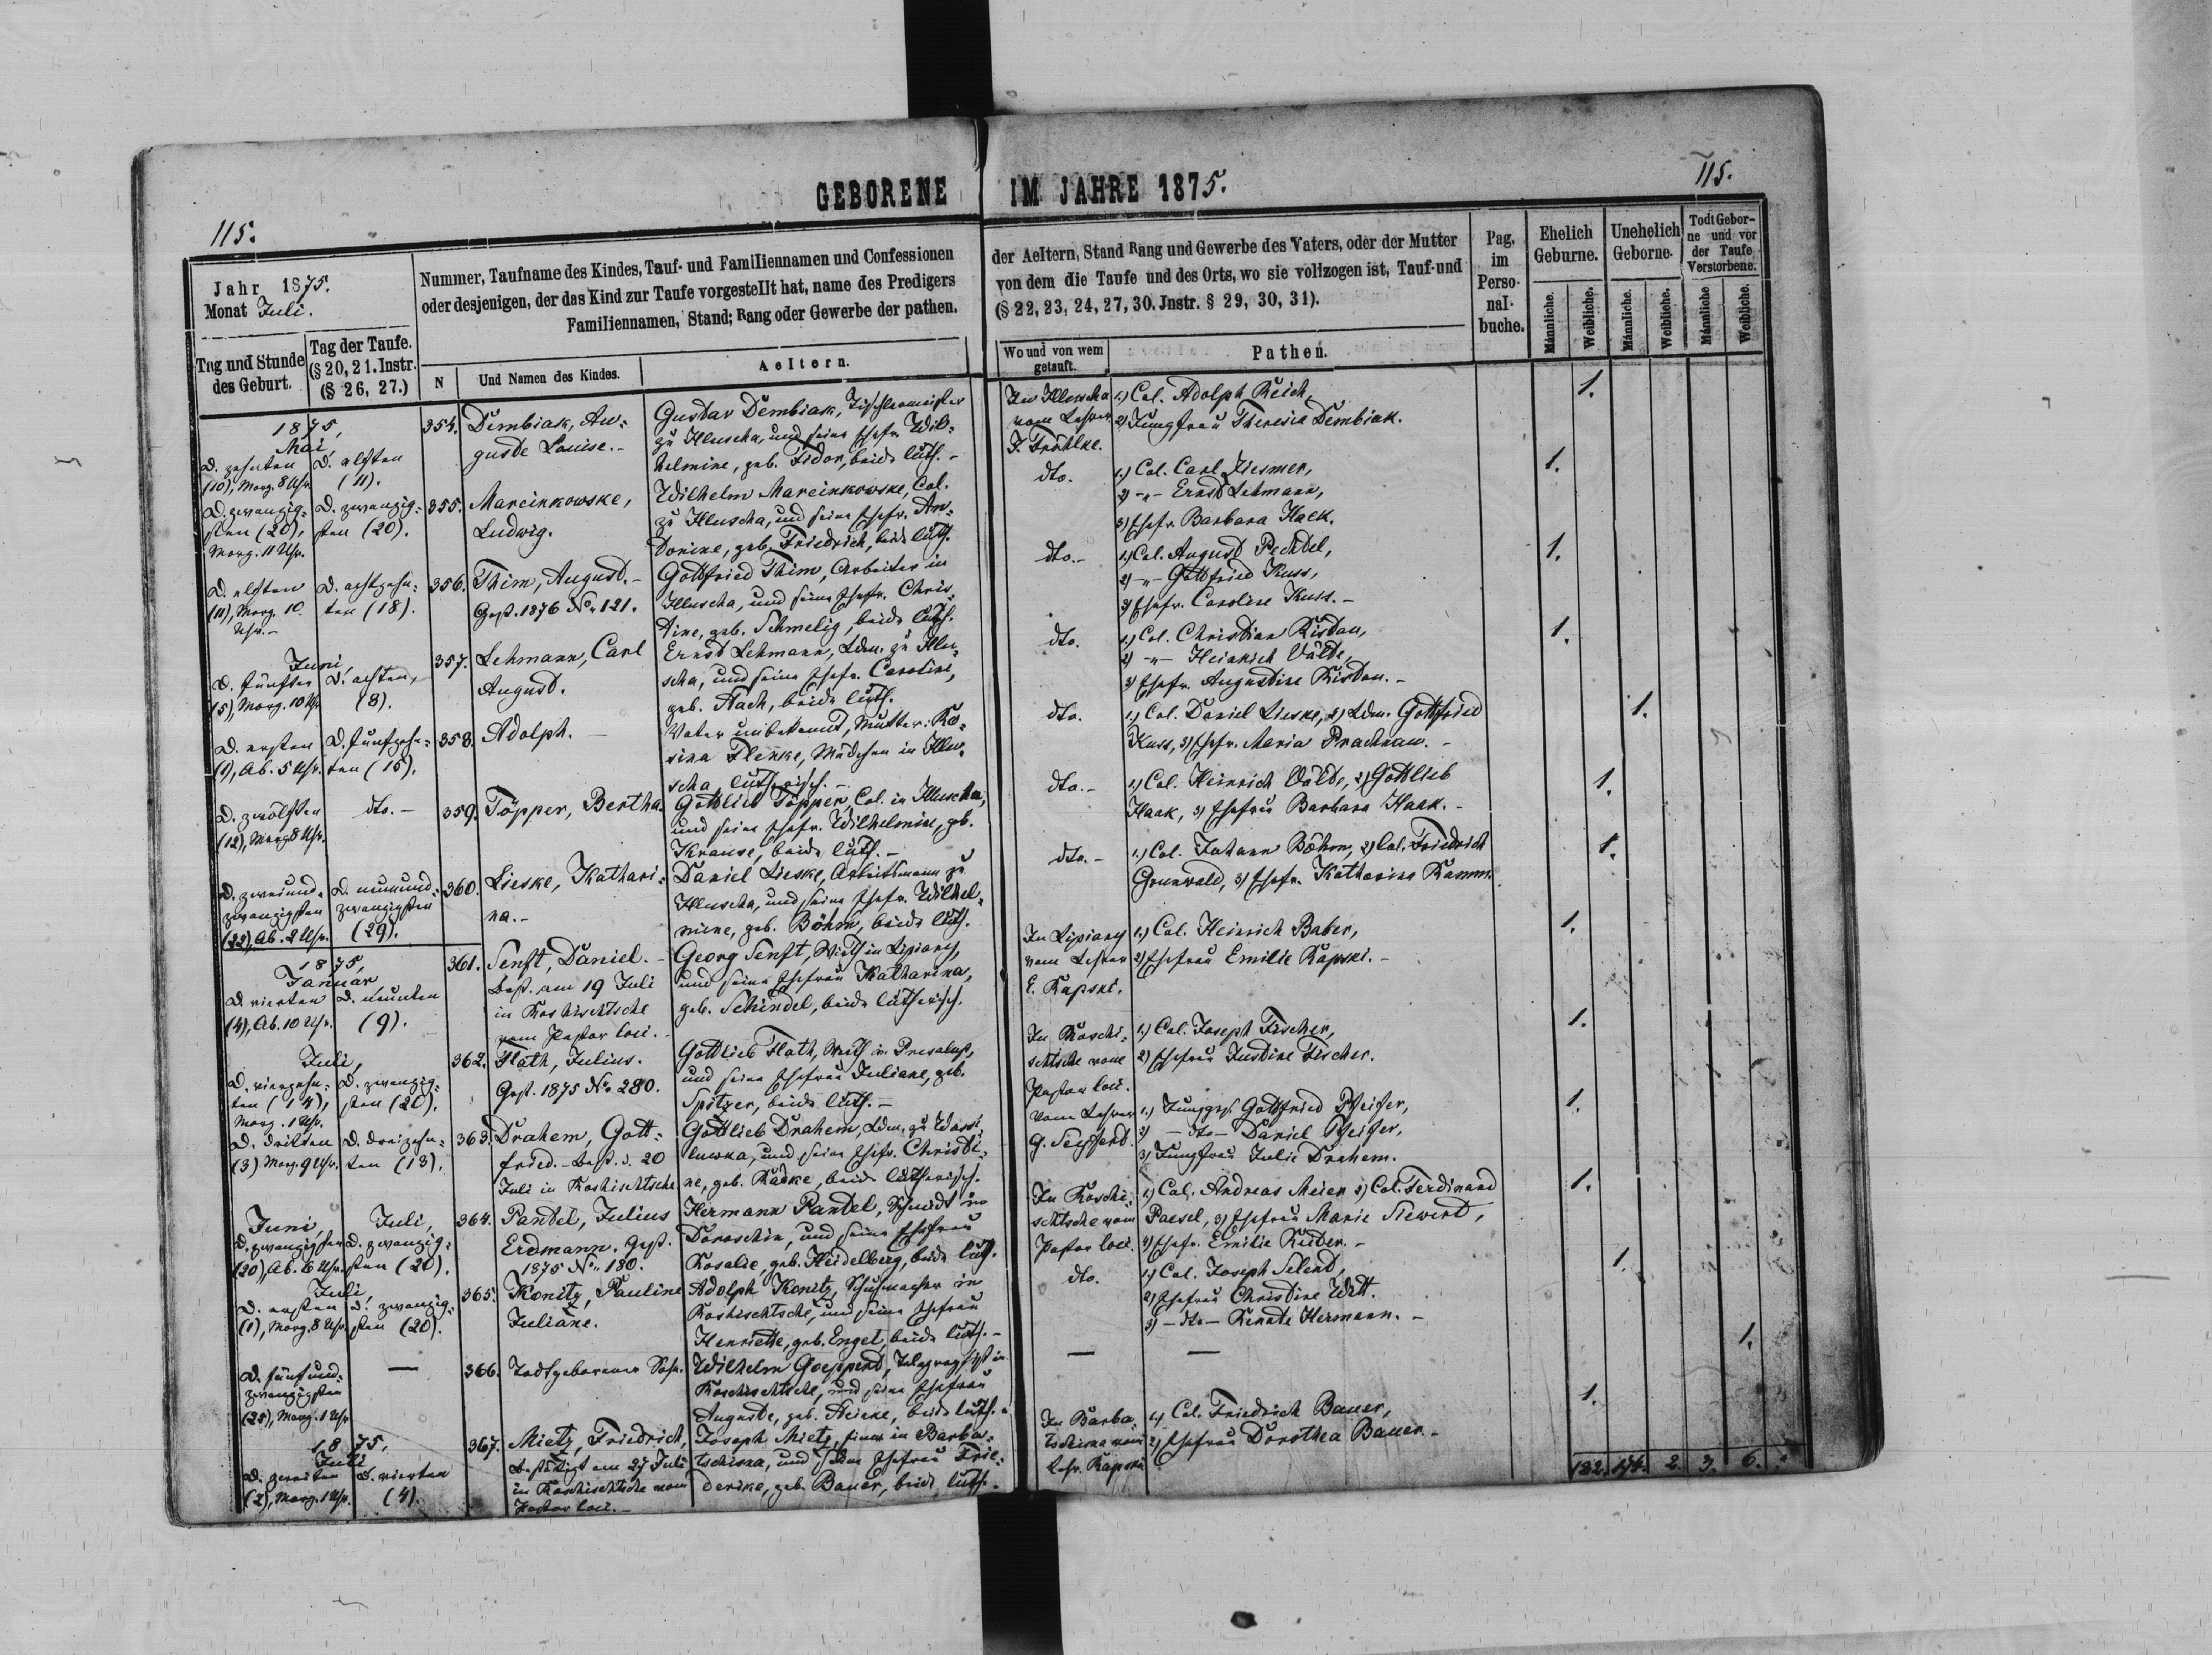 GEBORENE IM JAHRE 1875.
115.
115.
Jahr 1875.
Monat Juli.
Tag und Stunde
des Geburt.
Tag der Taufe.
(§ 20, 21. Instr.
(§ 26, 27.)
Nummer, Taufname des Kindes, Tauf- und Familiennamen und Confessionen
oder desjenigen, der das Kind zur Taufe vorgestellt hat, name des Predigers
Familiennamen, Stand; Rang oder Gewerbe der pathen.
N
Und Namen des Kindes.
Aeltern.
der Aeltern, Stand Rang und Gewerbe des Vaters, oder der Mutter
von dem die Taufe und des Orts, wo sie vollzogen ist, Tauf-und
(§ 22, 23, 24, 27, 30. Jnstr. § 29, 30, 31).
Wo und von wem
getauft.
Pathen.
Pag.
im
Perso-
nal-
buche.
Ehelich
Geburne.
Unehelich
Geborne.
Todt Gebor-
ne und vor
der Taufe
Verstorbene.
Männliche.
Weibliche.
Männliche.
Weibliche.
Männliche
Weibliche.
1875,
Mai,
D. zehnten
(10), Morg. 8 Uhr.
D. elften
(11).
354.
Dembiak, Au-
guste Louise.-
Gustav Dembiak, Tischlermeister
zu Hluscha, und seine Ehefr. Wil-
helmine, geb. Fidor, beide luth.-
In Hluscha
vom Lehrer
F. Tröhlke.
1.) Col. Adolph Reich,
2) Jungfrau Theresia Dembiak.
1.
D. zwanzig-
sten (20),
Morg. 11 Uhr.
D. zwanzig-
sten (20).
355.
Marcinkowske,
Ludwig.
Wilhelm Marcinkowske, Col.
zu Hluscha, und seine Ehefr. An-
tonine, geb. Friedrich, beide luth.
dto.
1.) Col. Carl Ziesmer,
2) -"- Ernst Lehmann,
3) Ehefr. Barbara Haek.
1.
D. elften
(11), Morg. 10
Uhr.-
D. achtzehn-
ten (18).
356.
Thim, August.-
Gest. 1876 No. 121.
Gottfried Thim, Arbeiter in
Hluscha, und seine Ehefr. Chris-
tine, geb. Schmelig, beide luth.
dto.-
1.) Col. August Pechtel,
2) -"- Gottfried Kuss,
3) Ehefr. Caroline Kuss.-
1.
Juni,
D. fünften
(5), Morg. 10 Uhr
D. achten,
(8).
357.
Lehmann, Carl
August.
Ernst Lehmann, Ldm. zu Hlu-
scha, und seine Ehefr. Caroline,
geb. Nach, beide luth.
dto.
1.) Col. Christian Ristau,
2) -"- Heinrich Välde,
3) Ehefr. Augustine Ristau.-
1.
D. ersten
(1), Ab. 5 Uhr.
D. fünfzehn-
ten (15).
358.
Adolph.-
Vater unbekannt, Mutter: Ro-
sina Flenke, Mädchen in Hlu-
scha lutherisch.-
dto.
1.) Col. Daniel Lieske, 2) Ldm. Gottfried
Kuss, 3) Ehefr. Maria Prachnau.-
1.
D. zwölften
(12), Morg. 8 Uhr.
dto.-
359.
Töpper, Bertha.
Gottlieb Töpper, Col. in Hluscha,
und seine Ehefr. Wilhelmine, geb.
Krause, beide luth.-
dto.-
1.) Col. Heinrich Välde, 2) Gottlieb
Haak, 3) Ehefrau Barbara Haak.-
1.
D. zweiund-
zwanzigsten
(22), Ab. 2 Uhr.
D. neunund-
zwanzigsten
(29).
360.
Lieske, Kathari-
na.-
Daniel Lieske, Arbeitsmann zu
Hluscha, und seine Ehefr. Wilhel-
mine, geb. Böhm, beide luth.
dto.-
1.) Col. Johann Böhm, 2) Col. Friedrich
Grunwald, 3) Ehefr. Katharina Kamm.
1.
1875,
Januar
D. vierten
(4), Ab. 10 Uhr.
D. neunten
(9).
361.
Senft, Daniel.-
Best. am 19 Juli
in Koshischtsche
vom Pastor loci.-
Georg Senft, Wirth in Lipiany,
und seine Ehefrau Katharina,
geb. Schindel, beide lutherisch.
In Lipiany
vom Lehrer
E. Kapski.
1.) Col. Heinrich Baber,
2) Ehefrau Emilie Kapski.-
1.
Juli,
D. vierzehn-
ten (14),
Morg. 1 Uhr.
D. zwanzig-
sten (20).
362.
Flath, Julius.
Gest. 1875 No 280.
Gottlieb Flath, Wirth in
und seine Ehefrau Juliane, geb.
Spitzer, beide luth.-
In Koschi-
schtsche vom
Pastor loci.
1.) Col. Joseph Fischer,
2) Ehefrau Justine Fischer.
1.
D. dritten
(3) Morg. 9 Uhr.
D. dreizehn-
ten (13).
363.
Drahem, Gott-
fried.- Best. d. 20
Juli in Koshischtsche
Gottlieb Drahem, Ldm. zu Wassi-
lewka, und seine Ehefr. Christi-
ne, geb. Radke, beide lutherisch.
vom Lehrer
G. Seyfferd.
1.) Junggs. Gottfried Pfeifer,
2) -dto- Daniel Pfeifer,
3) Jungfrau Julie Drahem.
1.
Juni,
D. zwanzigsten
(20), Ab. 6 Uhr.
Juli,
D. zwanzig-
sten (20).
364.
Pandel, Julius
Erdmann. Gest.
1875 No. 180.
Hermann Pandel, Schmidt in
Doroschin, und seine Ehefrau
Rosalie, geb. Heidelberg, beide luth.
In Koschi-
schtsche vom
Pastor loci.
1.) Col. Andreas Meier 2) Col. Ferdinand
Paesel, 3) Ehefrau Marie Siewert,
4) Ehefr. Emilie Kister.-
1.
Juli,
D. ersten
(1), Morg. 8 Uhr.
D. zwanzig-
sten (20).
365.
Konitz, Pauline
Juliane.
Adolph Konitz, Schuhmacher in
Koshischtsche, und seine Ehefrau
Henriette, geb. Engel, beide luth.-
dto.
1.) Col. Joseph Selend,
2) Ehefrau Christine Witt.
3) -dto- Renate Hermann.-
1.
D. fünfund-
zwanzigsten
(25), Morg. 1 Uhr
—
366.
Todtgeborener Sohn.
Wilhelm Goeppert, Telegraphist in
Koschischtsche, und seine Ehefrau
Auguste, geb. Reinke, beide luth.-
—
—
1.
1875.
Juli
D. zweiten
(2), Morg. 1 Uhr.
D. vierten
(4).
367.
Mietz, Friedrich,
bestätigt am 27 Juli
in Koschischtsche vom
Pastor loci.-
Joseph Mietz, in Barba-
tschisna, und seine Ehefrau Frie-
derike, geb. Bauer, beide luth.-
In Barba-
tschisna vom
Lehr. Kapski
1.) Col. Friedrich Bauer,
2) Ehefrau Dorothea Bauer.-
1.
182. 174. 2. 3. 6.